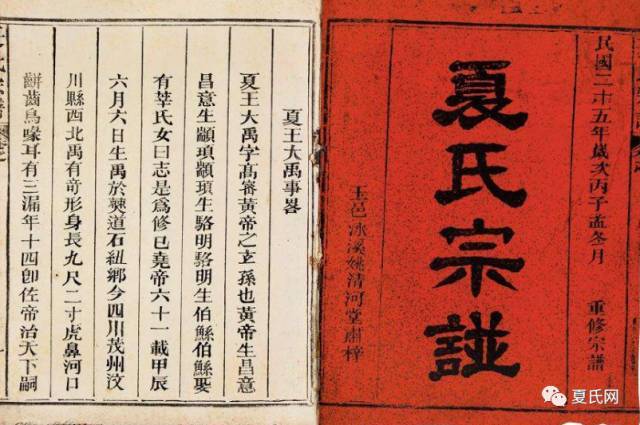 民國二十五年歲次丙子孟冬月　重修宗譜
夏氏宗譜
玉邑冰溪姚清河堂肅梓
夏王大禹事畧
夏王大禹字高宻黃帝之玄孫也黃帝生昌意
昌意生顓頊顓頊生駱明駱明生伯鯀伯鯀娶
有莘氏女曰志是爲修巳堯帝六十一載甲辰
六月六日生禹於僰道石紐鄉今四川茂州汶
川縣西北禹有竒形身長九尺二寸虎鼻河口
齒鳥喙耳有三漏年十四卽佐帝治天下嗣
夏氏网